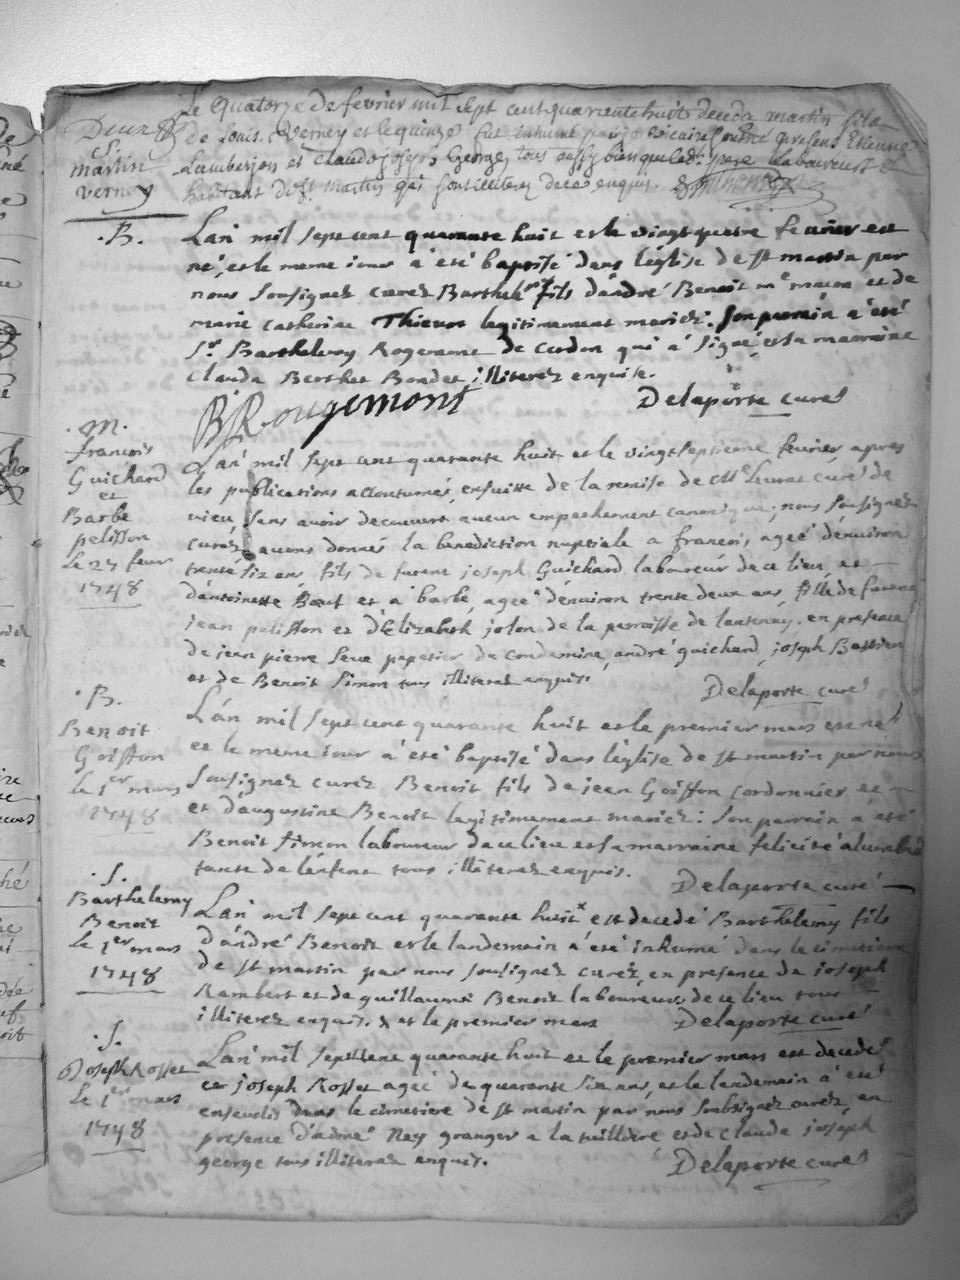 le quatorze de fevrier mil sept cent quarente huit deceda martin fils
de louis Verney et le quinze fut inhumé par vicaire present Etienne
Lamberjon et Claude joseph George, tous aussy bien que le pere laboureurs
habitant de st martin qui sont illiteres de ce enquis.
martin
verney
.B.
L'an mil sept cent quarante huit et le vingt quatre fevrier est
né, et le meme iour à eté baptisé dans l'église de st martin par
nous soussignez curez Barthelmy fils d'andré Benoit me macon et de
marie catherine Thieven legitimement mariez: son parrain a été
Sr Barthelemy Rogemont de Cerdon qui a signé, et sa marraine
Clauda Berthet Bondet illiterez enquise.
BRougemont
Delaporte curé
.M.
francois
Guichard
et
Barbe
pelisson
le 27 feur
1748
L'an mil sept cent quarante huit et le vingt septieme fevrier, apres
les publications accoutumés, ensuitte de la remise de Mre Leurat curé de
vieu, sans avoir decouvert aucun empechement canonique; nous soussignez
curez avons donnés la benediction nuptiale a francois, ageé d'environ
trente six ans, fils de furent joseph Guichard laboureur de ce lieu, et
d'antoinette Bout et a barbe, ageé d'environ trente deux ans, fille de furent
jean pelisson et d'Elizabeth jolon de la parroisse de lantenay, en presence
de jean pierre Seve papetier de condamine, andré guichard, joseph Bastien
et de Benoit Simon tous illiterez enquis.
Delaporte curé
.B.
Benoit
Goiffon
le 1er mars
1748
L'an mil sept cent quarante huit et le premier mars est né
et le meme iour à eté baptisé dans l'église de st martin par nous
soussignez curez Benoit fils de jean Goiffon cordonnier et
et d'augustine Benoit legitimement mariez: son parrain a été
Benoit simon laboureur de ce lieu et sa marraine felicité
tante de l'enfent tous illiterez enquis.
Delaporte curé
.S.
Barthelemy
Benoit
le 1er mars
1748
L'an mil sept cent quarante huit x est decedé Barthelemy fils
d'andré Benoit et le landemain à eté inhumé dans le cimetiere
de st martin par nous soussignez curez, en presence de joseph
Rambert et de guillaume Benoit laboureurs de ce lieu tous
illiterez enquis. x et le premier mars
Delaporte curé
.S.
Joseph Rosset
le 1er mars
1748
L'an mil sept cent quarante huit et le premier mars est decedé
et joseph Rosset ageé de quarante six ans, et le lendemain à eté
enseveli dans le cimetiere de st martin par nous soubsignez curez, en
presence d'admé Ney granger a la teilliere et de claude joseph
george tous illiterez enquis.
Delaporte curé